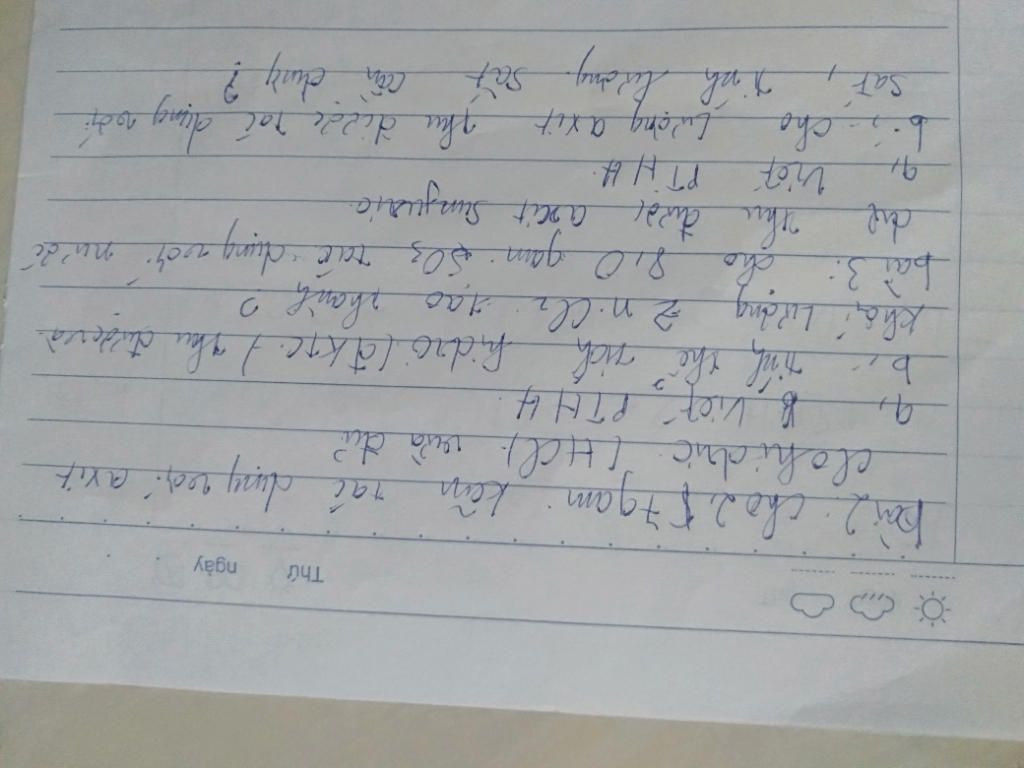 Thứ ngày
Bài 2: Cho 2,57 gam kẽm tác dụng với axit
clohidric (HCl) vừa đủ
a, Viết PTHH
b, tính thể tích hidro (đktc) thu được và
khối lượng ZnCl2 tạo thành ?
bài 3: cho 8,0 gam SO3 tác dụng với nước
dư thu được axit sunfuaric
a, Viết PTHH
b, cho lượng axit thu được tác dụng với
sắt, tính lượng sắt cần dùng ?